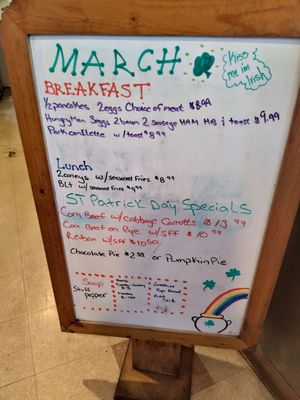 MARCH
Kiss me im Irish
BREAKFAST
1/2 pancakes 2 eggs Choice of meat $8.99
Hungryman 3eggs 2 bacon 2 sausage HAM HB & toast $9.99
Pork omflette w/toast $8.99
Lunch
2 coneys w/ seasoned fries $8.99
BLt w/ seasoned fries $9.99
ST Patrick Day Specials
Corn Beef w/cabbage Carrotts $13.99
Corn Beef on Rye w/SFF $10.99
Reuban w/SFF $10.50
Chocolate Pie $2.99 or Pumpkin Pie
Soup
Stuff
pepper